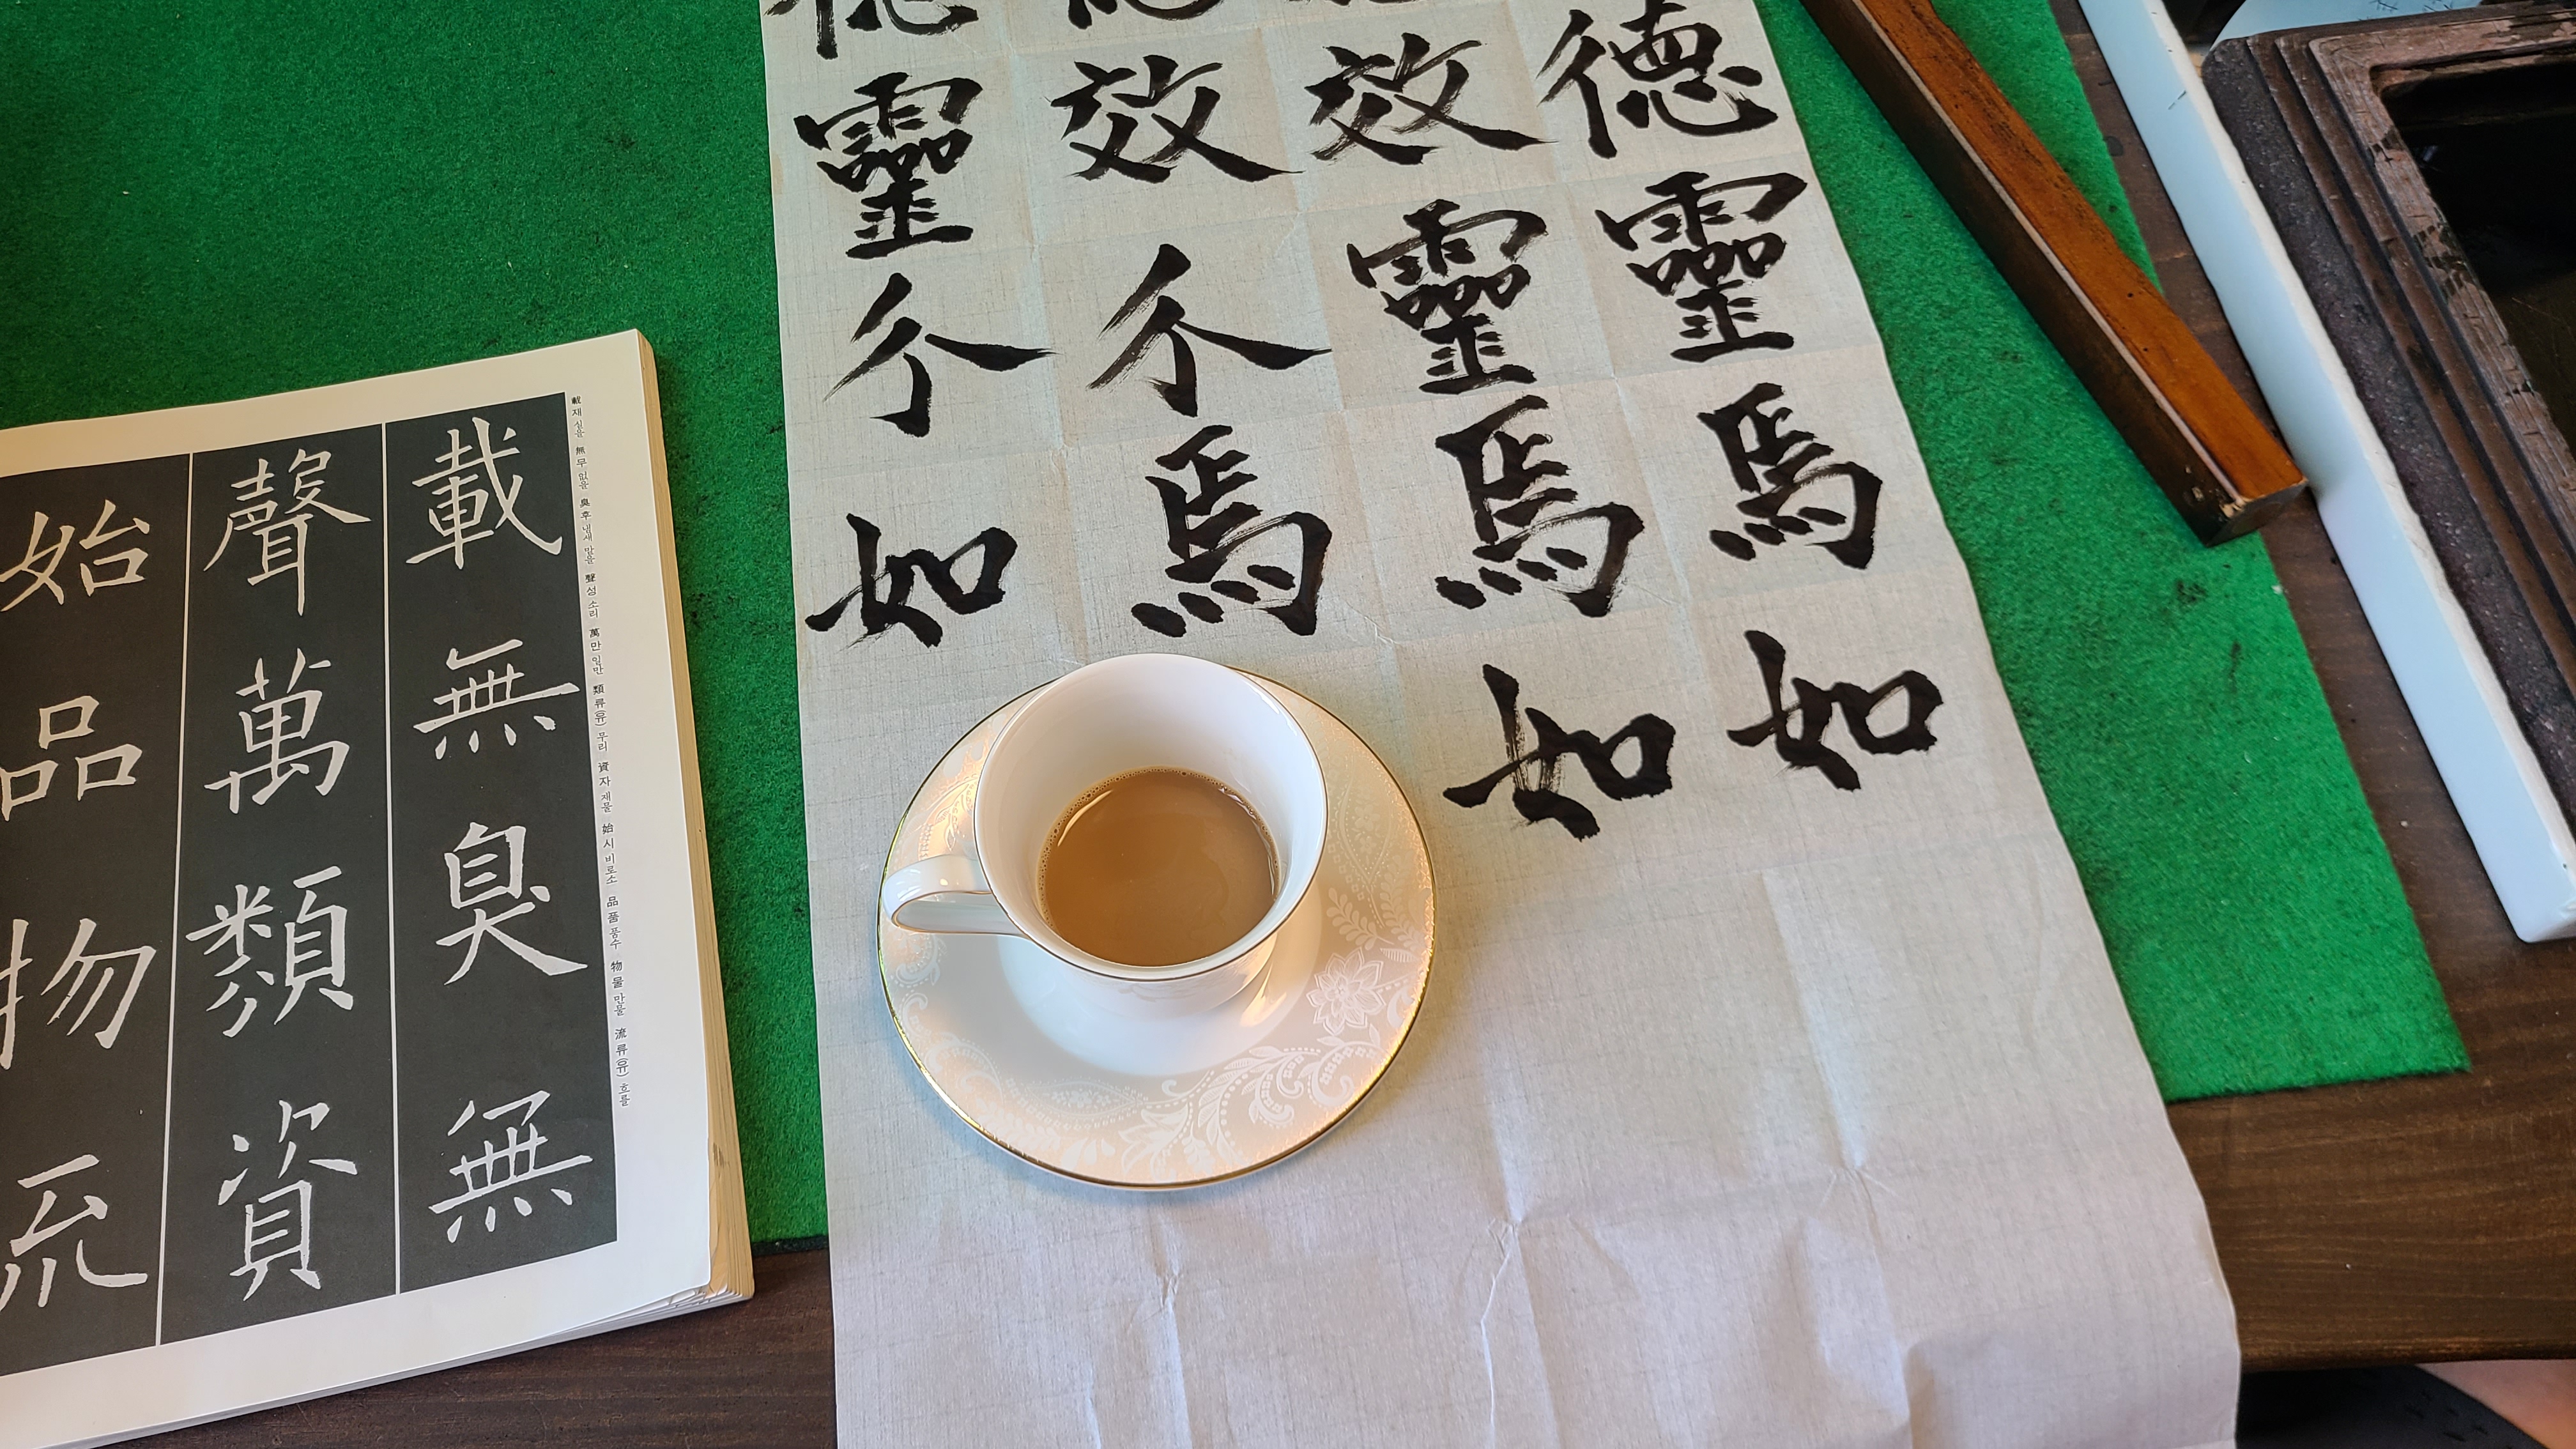 載無臭無
聲萬類資
始品物流
載 재 실을 無 무 없을 臭 후 냄새 맡을 聲 성 소리 萬 만 일만 類 류(유) 무리 資 자 재물 始 시 비로소 品 품 품수 物 물 만물 流 류(유) 흐를
德靈焉如
效靈焉如
效介焉
靈介如